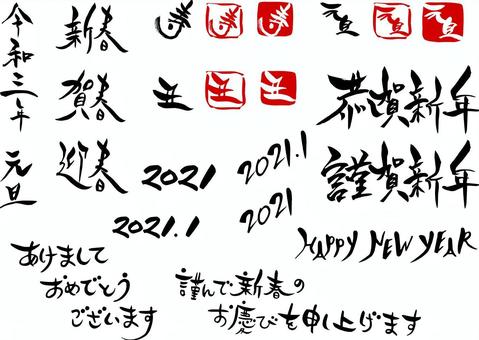 令和三年 元旦
新春
賀春
迎春
寿
寿
寿
丑
丑
丑
元旦
元旦
元旦
恭賀新年
謹賀新年
2021
2021.1
2021.1
2021
HAPPY NEW YEAR
あけまして
おめでとう
ございます
謹んで新春の
お慶びを申し上げます